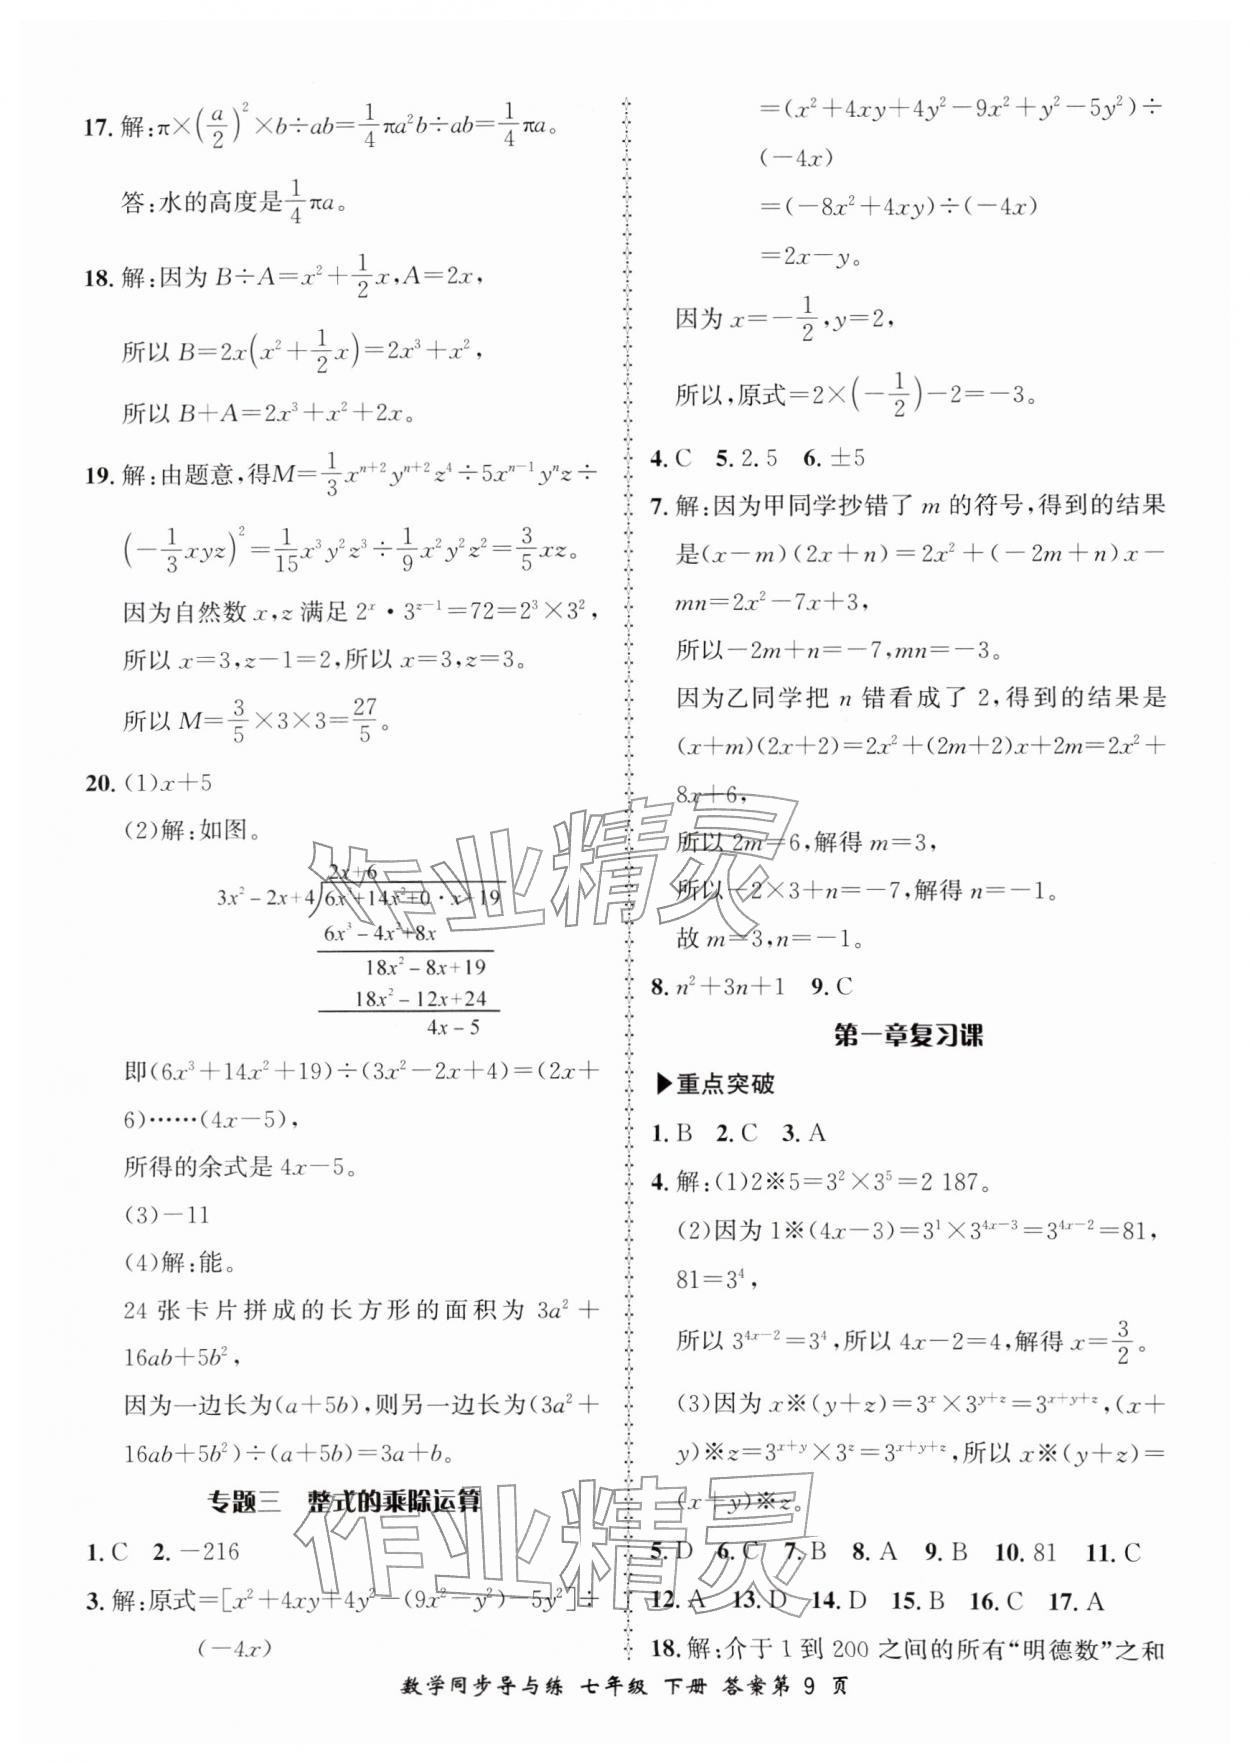 17. 解:π×(a/2)²×b÷ab=1/4πa²b÷ab=1/4πa。
答:水的高度是1/4πa。
18. 解:因为 B÷A=x²+1/2x,A=2x,
所以 B=2x(x²+1/2x)=2x³+x²,
所以 B+A=2x³+x²+2x。
19. 解:由题意,得M=1/3xⁿ⁺²yⁿ⁺²z⁴÷5xⁿ⁻¹yⁿz÷
(-1/3xyz)²=1/15x³y²z³÷1/9x²y²z²=3/5xz。
因为自然数 x,z 满足 2ˣ·3ᶻ⁻¹=72=2³×3²,
所以 x=3,z-1=2,所以 x=3,z=3。
所以 M=3/5×3×3=27/5。
20. (1)x+5
(2)解:如图。
2x+6
3x²-2x+4)6x³+14x²+0·x+19
6x³-4x²+8x
18x²-8x+19
18x²-12x+24
4x-5
即(6x³+14x²+19)÷(3x²-2x+4)=(2x+
6)……(4x-5),
所得的余式是 4x-5。
(3)-11
(4)解:能。
24 张卡片拼成的长方形的面积为 3a²+
16ab+5b²,
因为一边长为(a+5b),则另一边长为(3a²+
16ab+5b²)÷(a+5b)=3a+b。
专题三 整式的乘除运算
1. C 2. -216
3. 解:原式=[x²+4xy+4y²-(9x²-y²)-5y²]÷
(-4x)
=(x²+4xy+4y²-9x²+y²-5y²)÷
(-4x)
=(-8x²+4xy)÷(-4x)
=2x-y。
因为 x=-1/2,y=2,
所以,原式=2×(-1/2)-2=-3。
4. C 5. 2.5 6. ±5
7. 解:因为甲同学抄错了 m 的符号,得到的结果
是(x-m)(2x+n)=2x²+(-2m+n)x-
mn=2x²-7x+3,
所以-2m+n=-7,mn=-3。
因为乙同学把 n 错看成了 2,得到的结果是
(x+m)(2x+2)=2x²+(2m+2)x+2m=2x²+
8x+6,
所以 2m=6,解得 m=3,
所以-2×3+n=-7,解得 n=-1。
故 m=3,n=-1。
8. n²+3n+1 9. C
第一章复习课
▶重点突破
1. B 2. C 3. A
4. 解:(1)2※5=3²×3⁵=2 187。
(2)因为 1※(4x-3)=3¹×3⁴ˣ⁻³=3⁴ˣ⁻²=81,
81=3⁴,
所以 3⁴ˣ⁻²=3⁴,所以 4x-2=4,解得 x=3/2。
(3)因为 x※(y+z)=3ˣ×3ʸ⁺ᶻ=3ˣ⁺ʸ⁺ᶻ,(x+
y)※z=3ˣ⁺ʸ×3ᶻ=3ˣ⁺ʸ⁺ᶻ,所以 x※(y+z)=
(x+y)※z。
5. D 6. C 7. B 8. A 9. B 10. 81 11. C
12. A 13. D 14. D 15. B 16. C 17. A
18. 解:介于 1 到 200 之间的所有“明德数”之和
数学同步导与练 七年级 下册 答案第 9 页
作业精灵
作业精灵